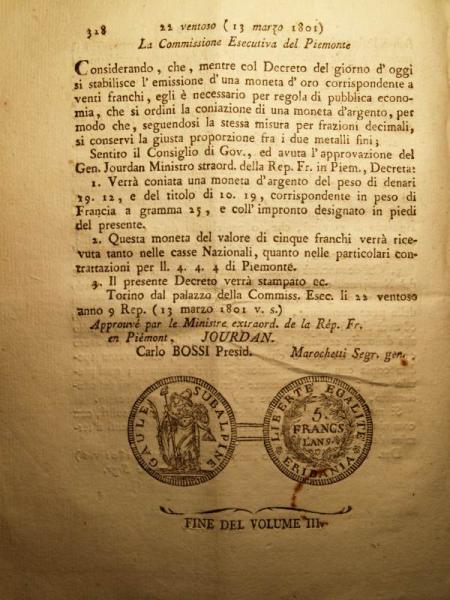 328 22 ventoso ( 13 marzo 1801 )
La Commissione Esecutiva del Piemonte
Considerando, che, mentre col Decreto del giorno d' oggi
si stabilisce l' emissione d' una moneta d' oro corrispondente a
venti franchi, egli è necessario per regola di pubblica econo-
mia, che si ordini la coniazione di una moneta d'argento, per
modo che, seguendosi la stessa misura per frazioni decimali,
si conservi la giusta proporzione fra i due metalli fini;
Sentito il Consiglio di Gov., ed avuta l'approvazione del
Gen. Jourdan Ministro straord. della Rep. Fr. in Piem., Decreta:
1. Verrà coniata una moneta d'argento del peso di denari
19. 12, e del titolo di 10. 19, corrispondente in peso di
Francia a gramma 25, e coll' impronto designato in piedi
del presente.
2. Questa moneta del valore di cinque franchi verrà rice-
vuta tanto nelle casse Nazionali, quanto nelle particolari con-
trattazioni per ll. 4. 4. 4 di Piemonte.
3. Il presente Decreto verrà stampato ec.
Torino dal palazzo della Commiss. Esec. li 22 ventoso
anno 9 Rep. ( 13 marzo 1801 v. s.)
Approuvé par le Ministre extraord. de la Rép. Fr.
en Piémont. JOURDAN.
Carlo BOSSI Presid. Marochetti Segr. gen.
GAULE SUBALPINE
LIBERTE EGALITE
5.
FRANCS
L'AN 9.
ERIDANIA
FINE DEL VOLUME III.